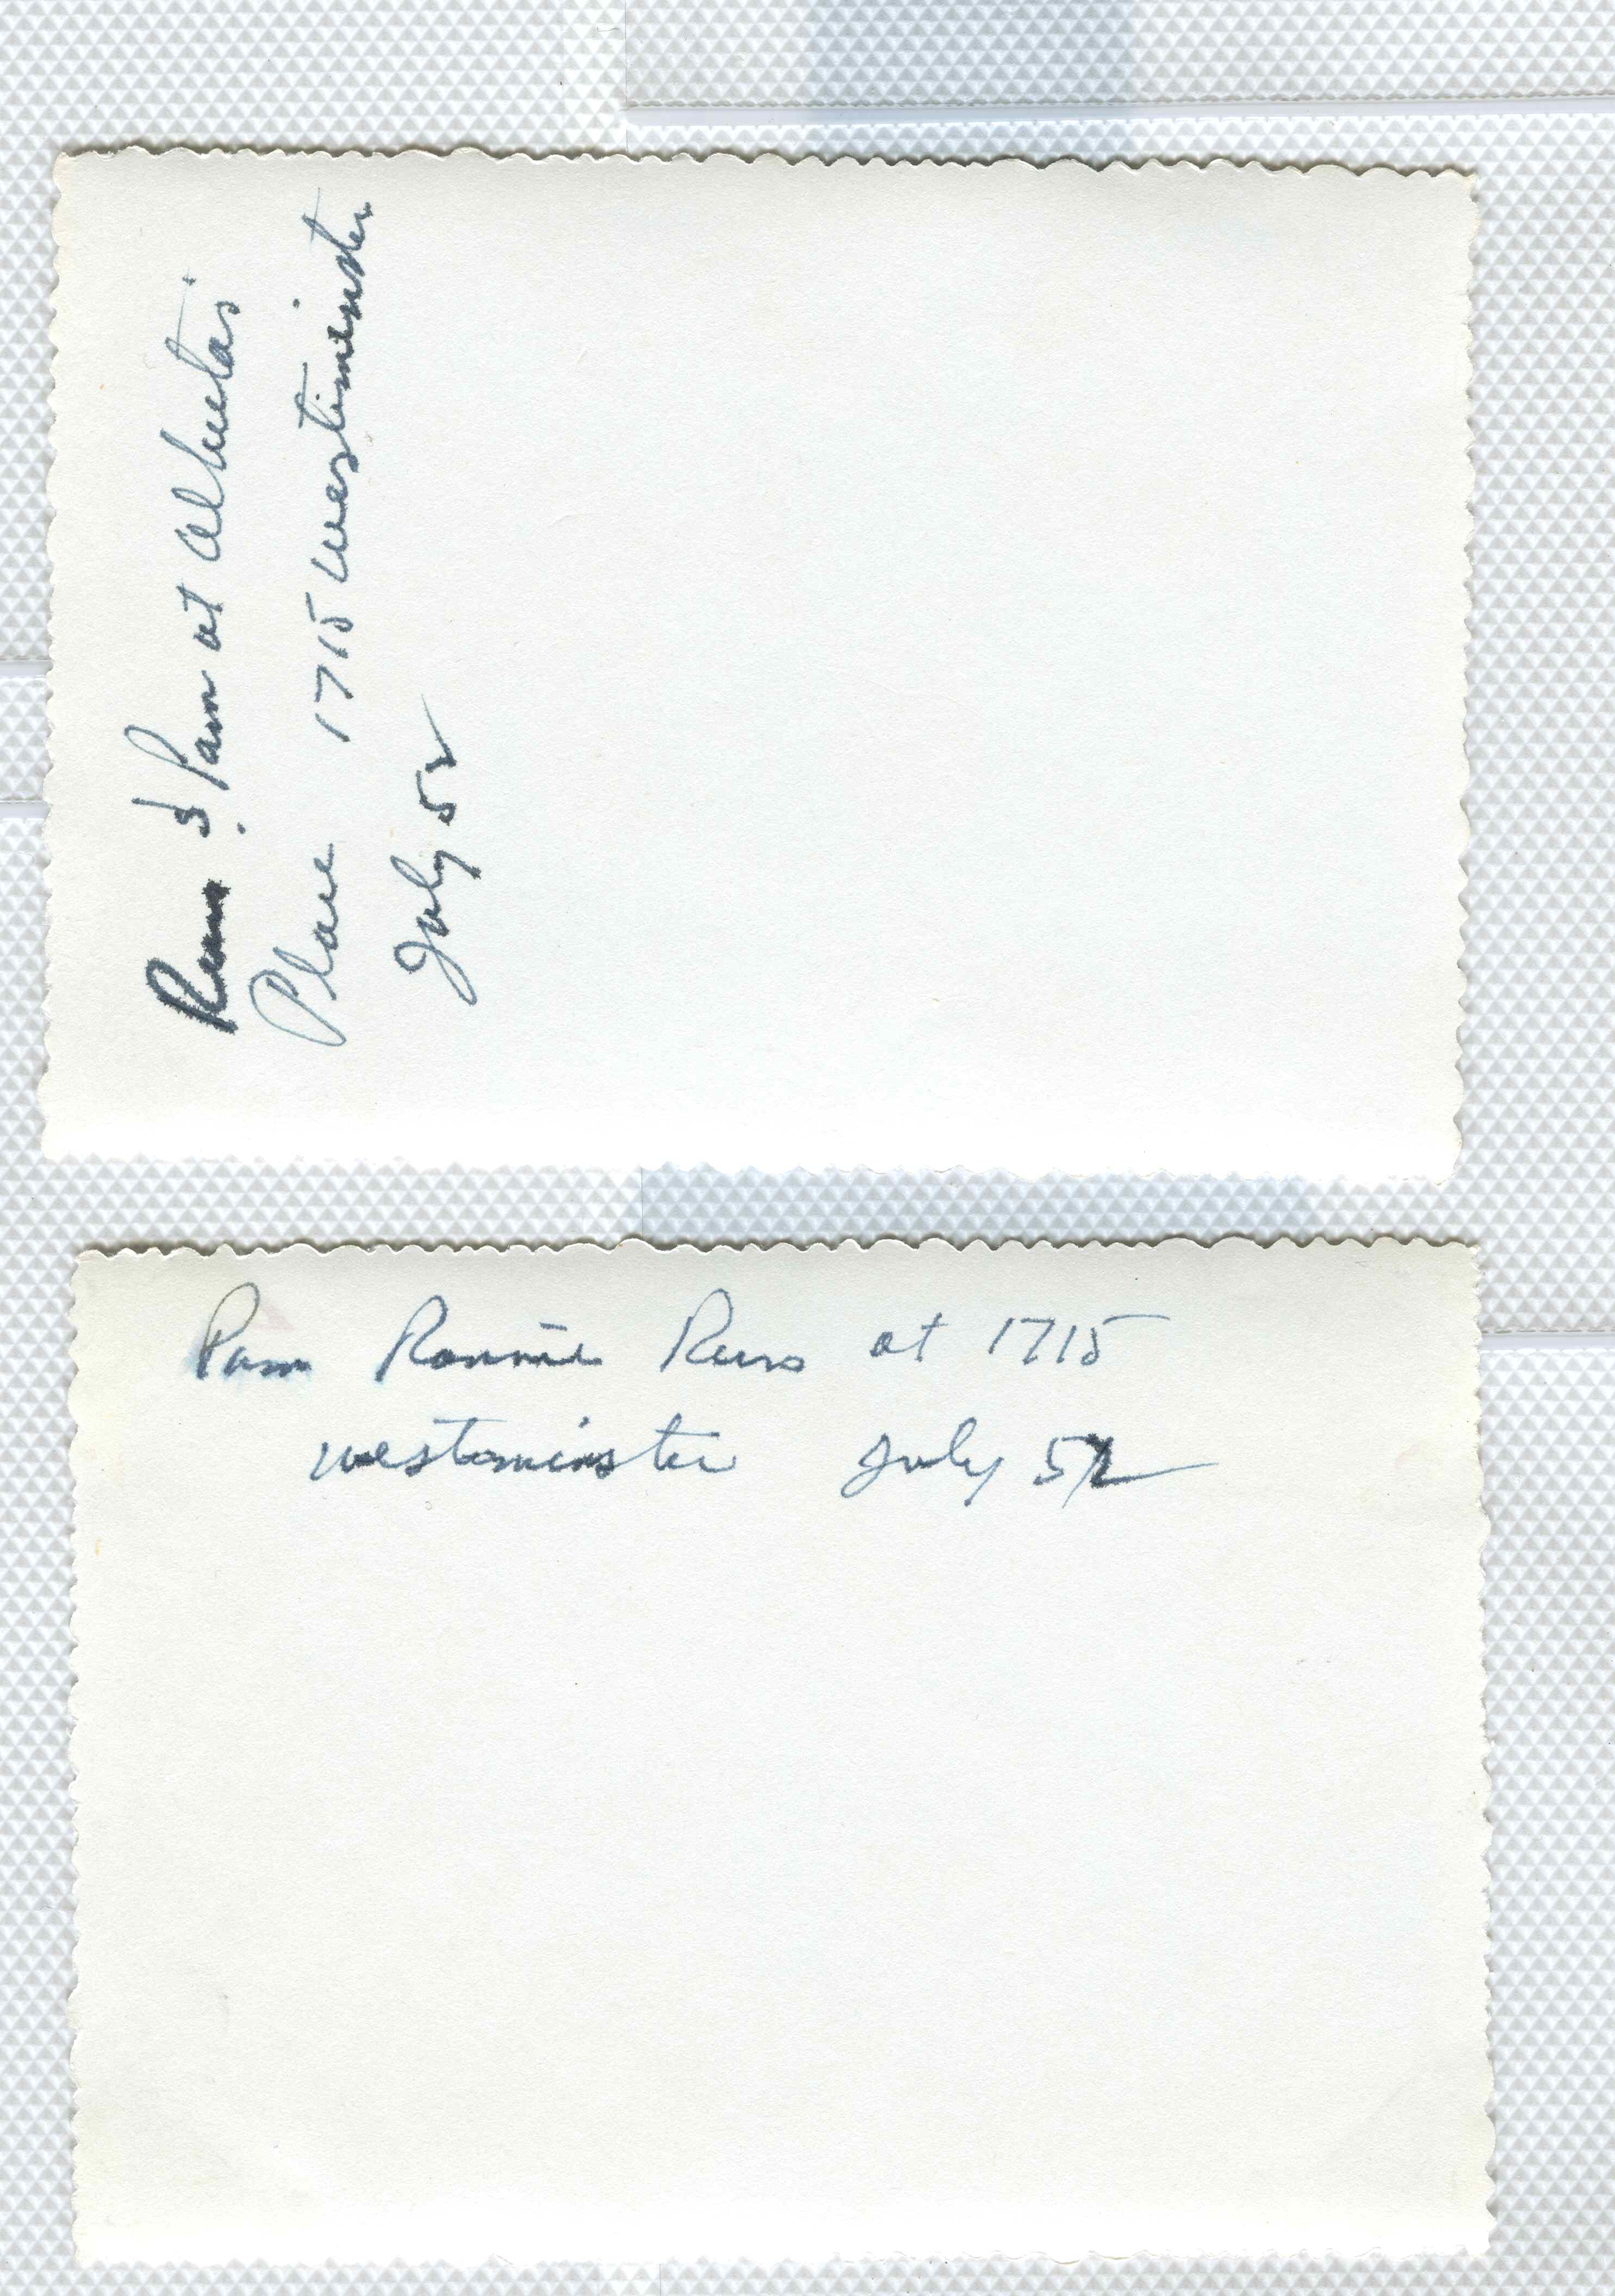 Russ & Pam at Alberta's
Place 1715 Westminster
July 52
Pam Ronnie Russ at 1715
westminster July 52